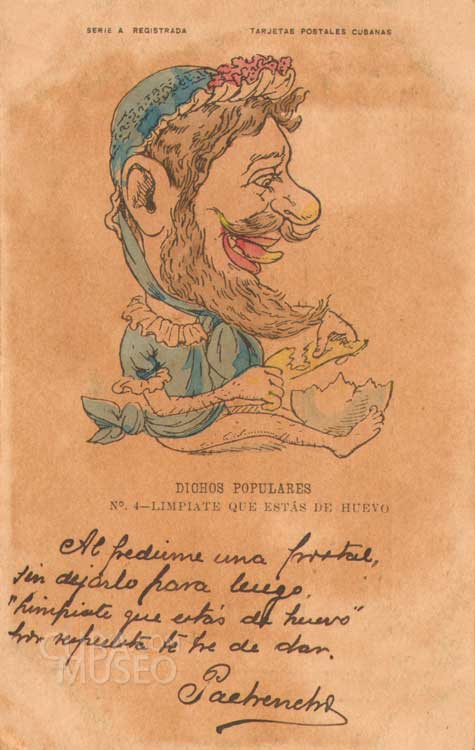 SERIE A REGISTRADA
TARJETAS POSTALES CUBANAS
DICHOS POPULARES
Nº. 4—LIMPIATE QUE ESTÁS DE HUEVO
Al pedirme una postal,
sin dejarlo para luego,
"Limpiate que estás de huevo"
por respuesta te he de dar.
MUSEO